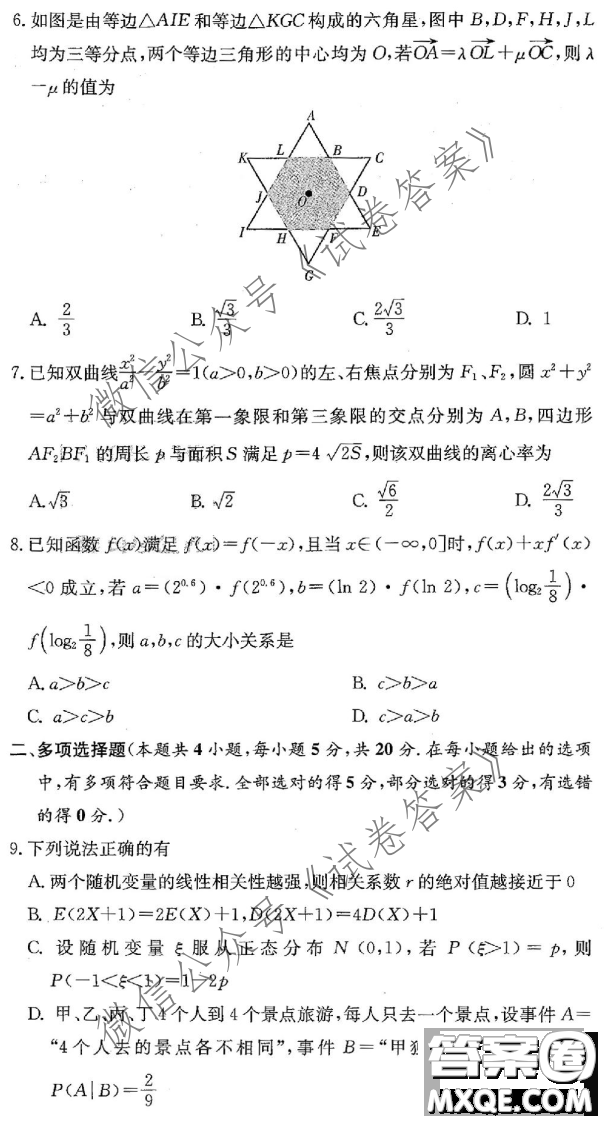 6. 如图是由等边△AIE和等边△KGC构成的六角星,图中B,D,F,H,J,L
均为三等分点,两个等边三角形的中心均为O,若OA=λOL+μOC,则λ
-μ的值为
A
K L B C
J O D
I H F E
G
A. 2/3 B. √3/3 C. 2√3/3 D. 1
7. 已知双曲线x²/a²-y²/b²=1(a>0,b>0)的左、右焦点分别为F₁、F₂,圆x²+y²
=a²+b²与双曲线在第一象限和第三象限的交点分别为A,B,四边形
AF₂BF₁的周长p与面积S满足p=4√2S,则该双曲线的离心率为
A. √3 B. √2 C. √6/2 D. 2√3/3
8. 已知函数f(x)满足f(x)=f(-x),且当x∈(-∞,0]时,f(x)+xf′(x)
<0成立,若a=(2⁰·⁶)·f(2⁰·⁶),b=(ln 2)·f(ln 2),c=(log₂1/8)·
f(log₂1/8),则a,b,c的大小关系是
A. a>b>c B. c>b>a
C. a>c>b D. c>a>b
二、多项选择题(本题共4小题,每小题5分,共20分.在每小题给出的选项
中,有多项符合题目要求.全部选对的得5分,部分选对的得3分,有选错
的得0分.)
9. 下列说法正确的有
A. 两个随机变量的线性相关性越强,则相关系数r的绝对值越接近于0
B. E(2X+1)=2E(X)+1,D(2X+1)=4D(X)+1
C. 设随机变量ξ服从正态分布N(0,1),若P(ξ>1)=p,则
P(-1<ξ<1)=1-2p
D. 甲、乙、丙、丁4个人到4个景点旅游,每人只去一个景点,设事件A=
“4个人去的景点各不相同”,事件B=“甲独
P(A|B)=2/9
微信公众号《试卷答案》
微信公众号《试卷答案》
答案圈
MXQE.COM